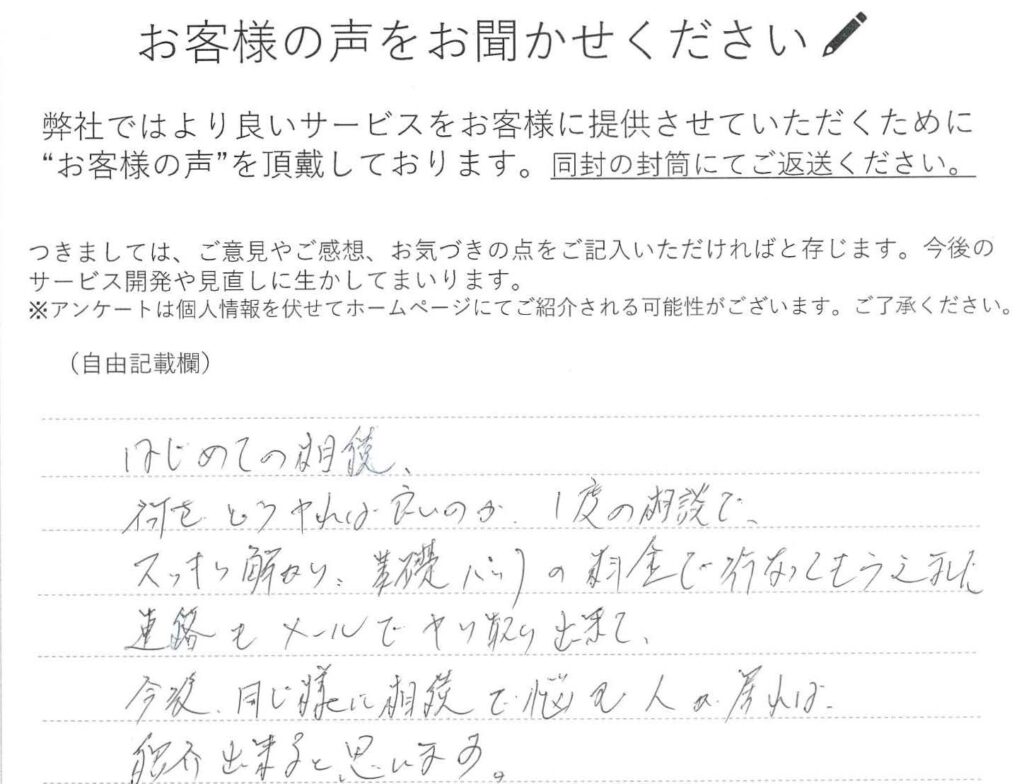 お客様の声をお聞かせください
弊社ではより良いサービスをお客様に提供させていただくために
“お客様の声”を頂戴しております。同封の封筒にてご返送ください。
つきましては、ご意見やご感想、お気づきの点をご記入いただければと存じます。今後の
サービス開発や見直しに生かしてまいります。
※アンケートは個人情報を伏せてホームページにてご紹介される可能性がございます。ご了承ください。
（自由記載欄）
はじめての相続、
何をどうやれば良いのか、1度の相談で、
スッキリ解かり、基礎パックの料金で行なってもらえました
連絡もメールでヤリ取り出来て、
今後、同じ様に相続で悩む人が居れば、
紹介出来ると思います。